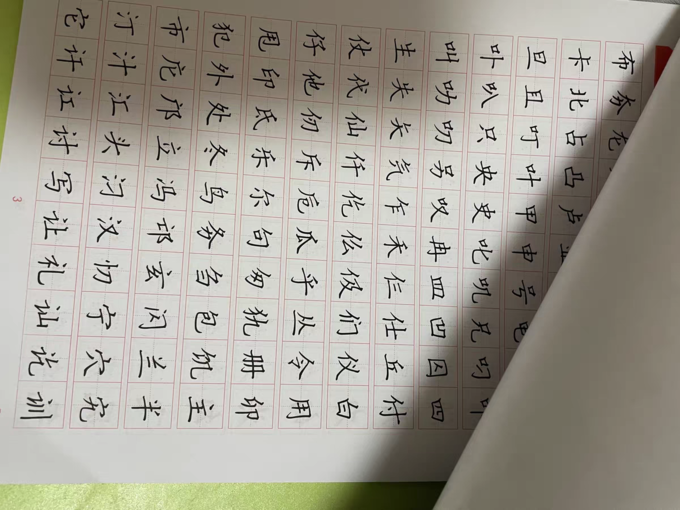 布夯龙
卡北占凸卢业
旦且叮叶甲申号电
卟叭只央史叱叽兄叼叩
叫叻叨另叹冉皿凹囚四
生失矢气乍禾仨仕丘付
仗代仙仟仡仫伋们仪白
仔他仞斥卮瓜乎丛令用
甩印氐乐尔句匆犰册卯
犯外处冬鸟务刍包饥主
市庀邝立冯邙玄闪兰半
汀汁汇头汈汉忉宁穴宄
它讦讧讨写让礼讪讫训
3